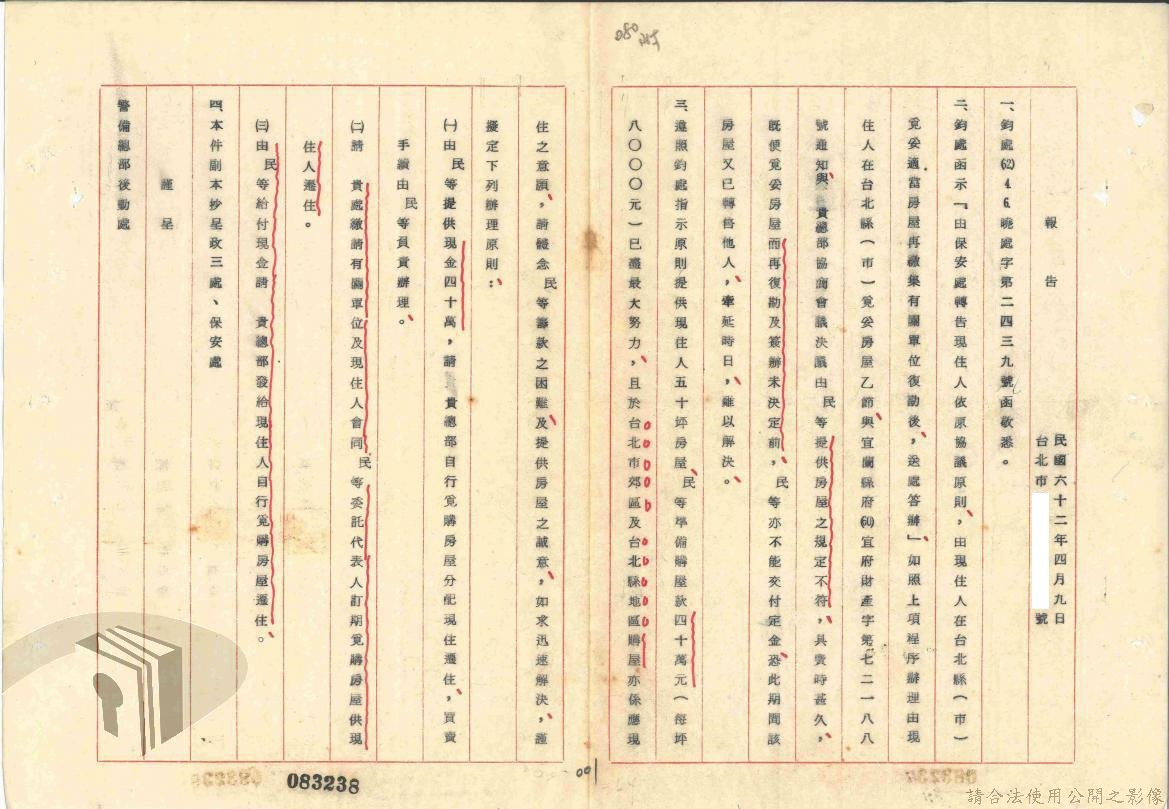 080
報告
民國六十二年四月九日
台北市
號
一、鈞處(62)4.6.曉處字第二四三九號函敬悉。
二、鈞處函示「由保安處轉告現住人依原協議原則，由現住人在台北縣（市）
覓妥適當房屋再繳集有關單位復勘後，送處答辦」如照上項程序辦理由現
住人在台北縣（市）覓妥房屋乙節，與宜蘭縣府(60)宜府財產字第七二一八八
號通知與　貴總部協商會議決議由民等提供房屋之規定不符，具費時甚久，
既便覓妥房屋而再復勘及簽辦未決定前，民等亦不能交付定金恐此期間該
房屋又已轉售他人，牽延時日，難以解決。
三、遵照鈞處指示原則提供現住人五十坪房屋，民等準備購屋款四十萬元（每坪
八〇〇〇元）已盡最大努力，且於台北市郊區及台北縣地區購屋亦係應現
住之意願，請體念民等籌款之困難及提供房屋之誠意，如求迅速解決，謹
擬定下列辦理原則：
㈠由民等提供現金四十萬，請　貴總部自行覓購房屋分配現住遷住，買賣
手續由民等負責辦理。
㈡請　貴處繳請有關單位及現住人會同民等委託代表人訂期覓購房屋供現
住人遷住。
㈢由民等給付現金請　貴總部發給現住人自行覓購房屋遷住。
四、本件副本抄呈政三處、保安處
謹呈
警備總部後勤處
083238
請合法使用公開之影像